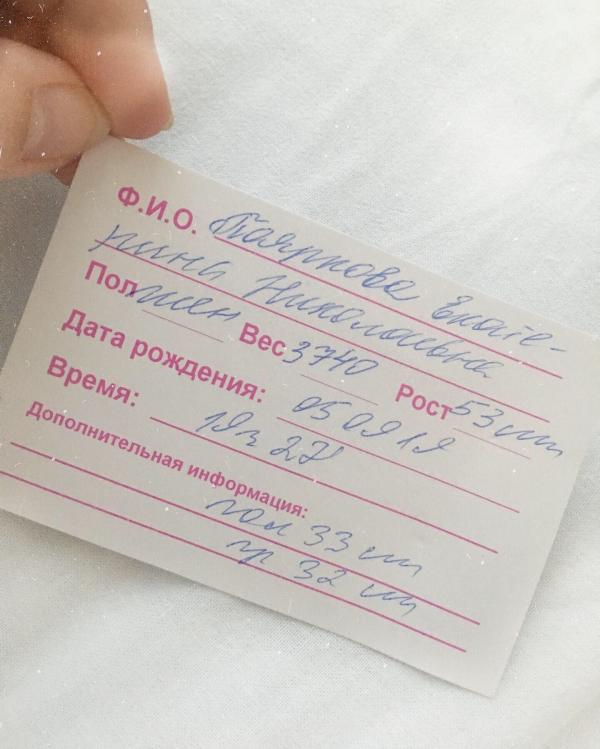 Ф.И.О. Пояркова Екате-
рина Николаевна
Пол жен Вес 3740 Рост 53 см
Дата рождения: 05 09 19
Время: 19ч 27'
Дополнительная информация:
гол 33 см
гр 32 см